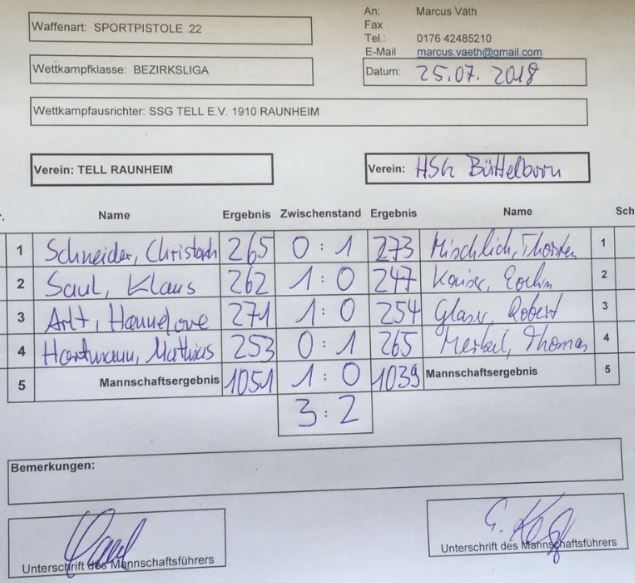 Waffenart: SPORTPISTOLE .22
An: Marcus Väth
Fax
Tel.: 0176 42485210
E-Mail marcus.vaeth@gmail.com
Wettkampfklasse: BEZIRKSLIGA
Datum: 25.07.2018
Wettkampfausrichter: SSG TELL E.V. 1910 RAUNHEIM
Verein: TELL RAUNHEIM
Verein: HSG Büttelborn
Name Ergebnis Zwischenstand Ergebnis Name Sch
1 Schneider, Christoph 265 0:1 273 Mischlich, Thorsten 1
2 Saul, Klaus 262 1:0 247 2
3 Arlt, Hannelore 271 1:0 254 Glaser, Robert 3
4 Hartmann, Mathias 253 0:1 265 Thomas 4
5 Mannschaftsergebnis 1051 1:0 1039 Mannschaftsergebnis 5
3:2
Bemerkungen:
Unterschrift des Mannschaftsführers
Unterschrift des Mannschaftsführers